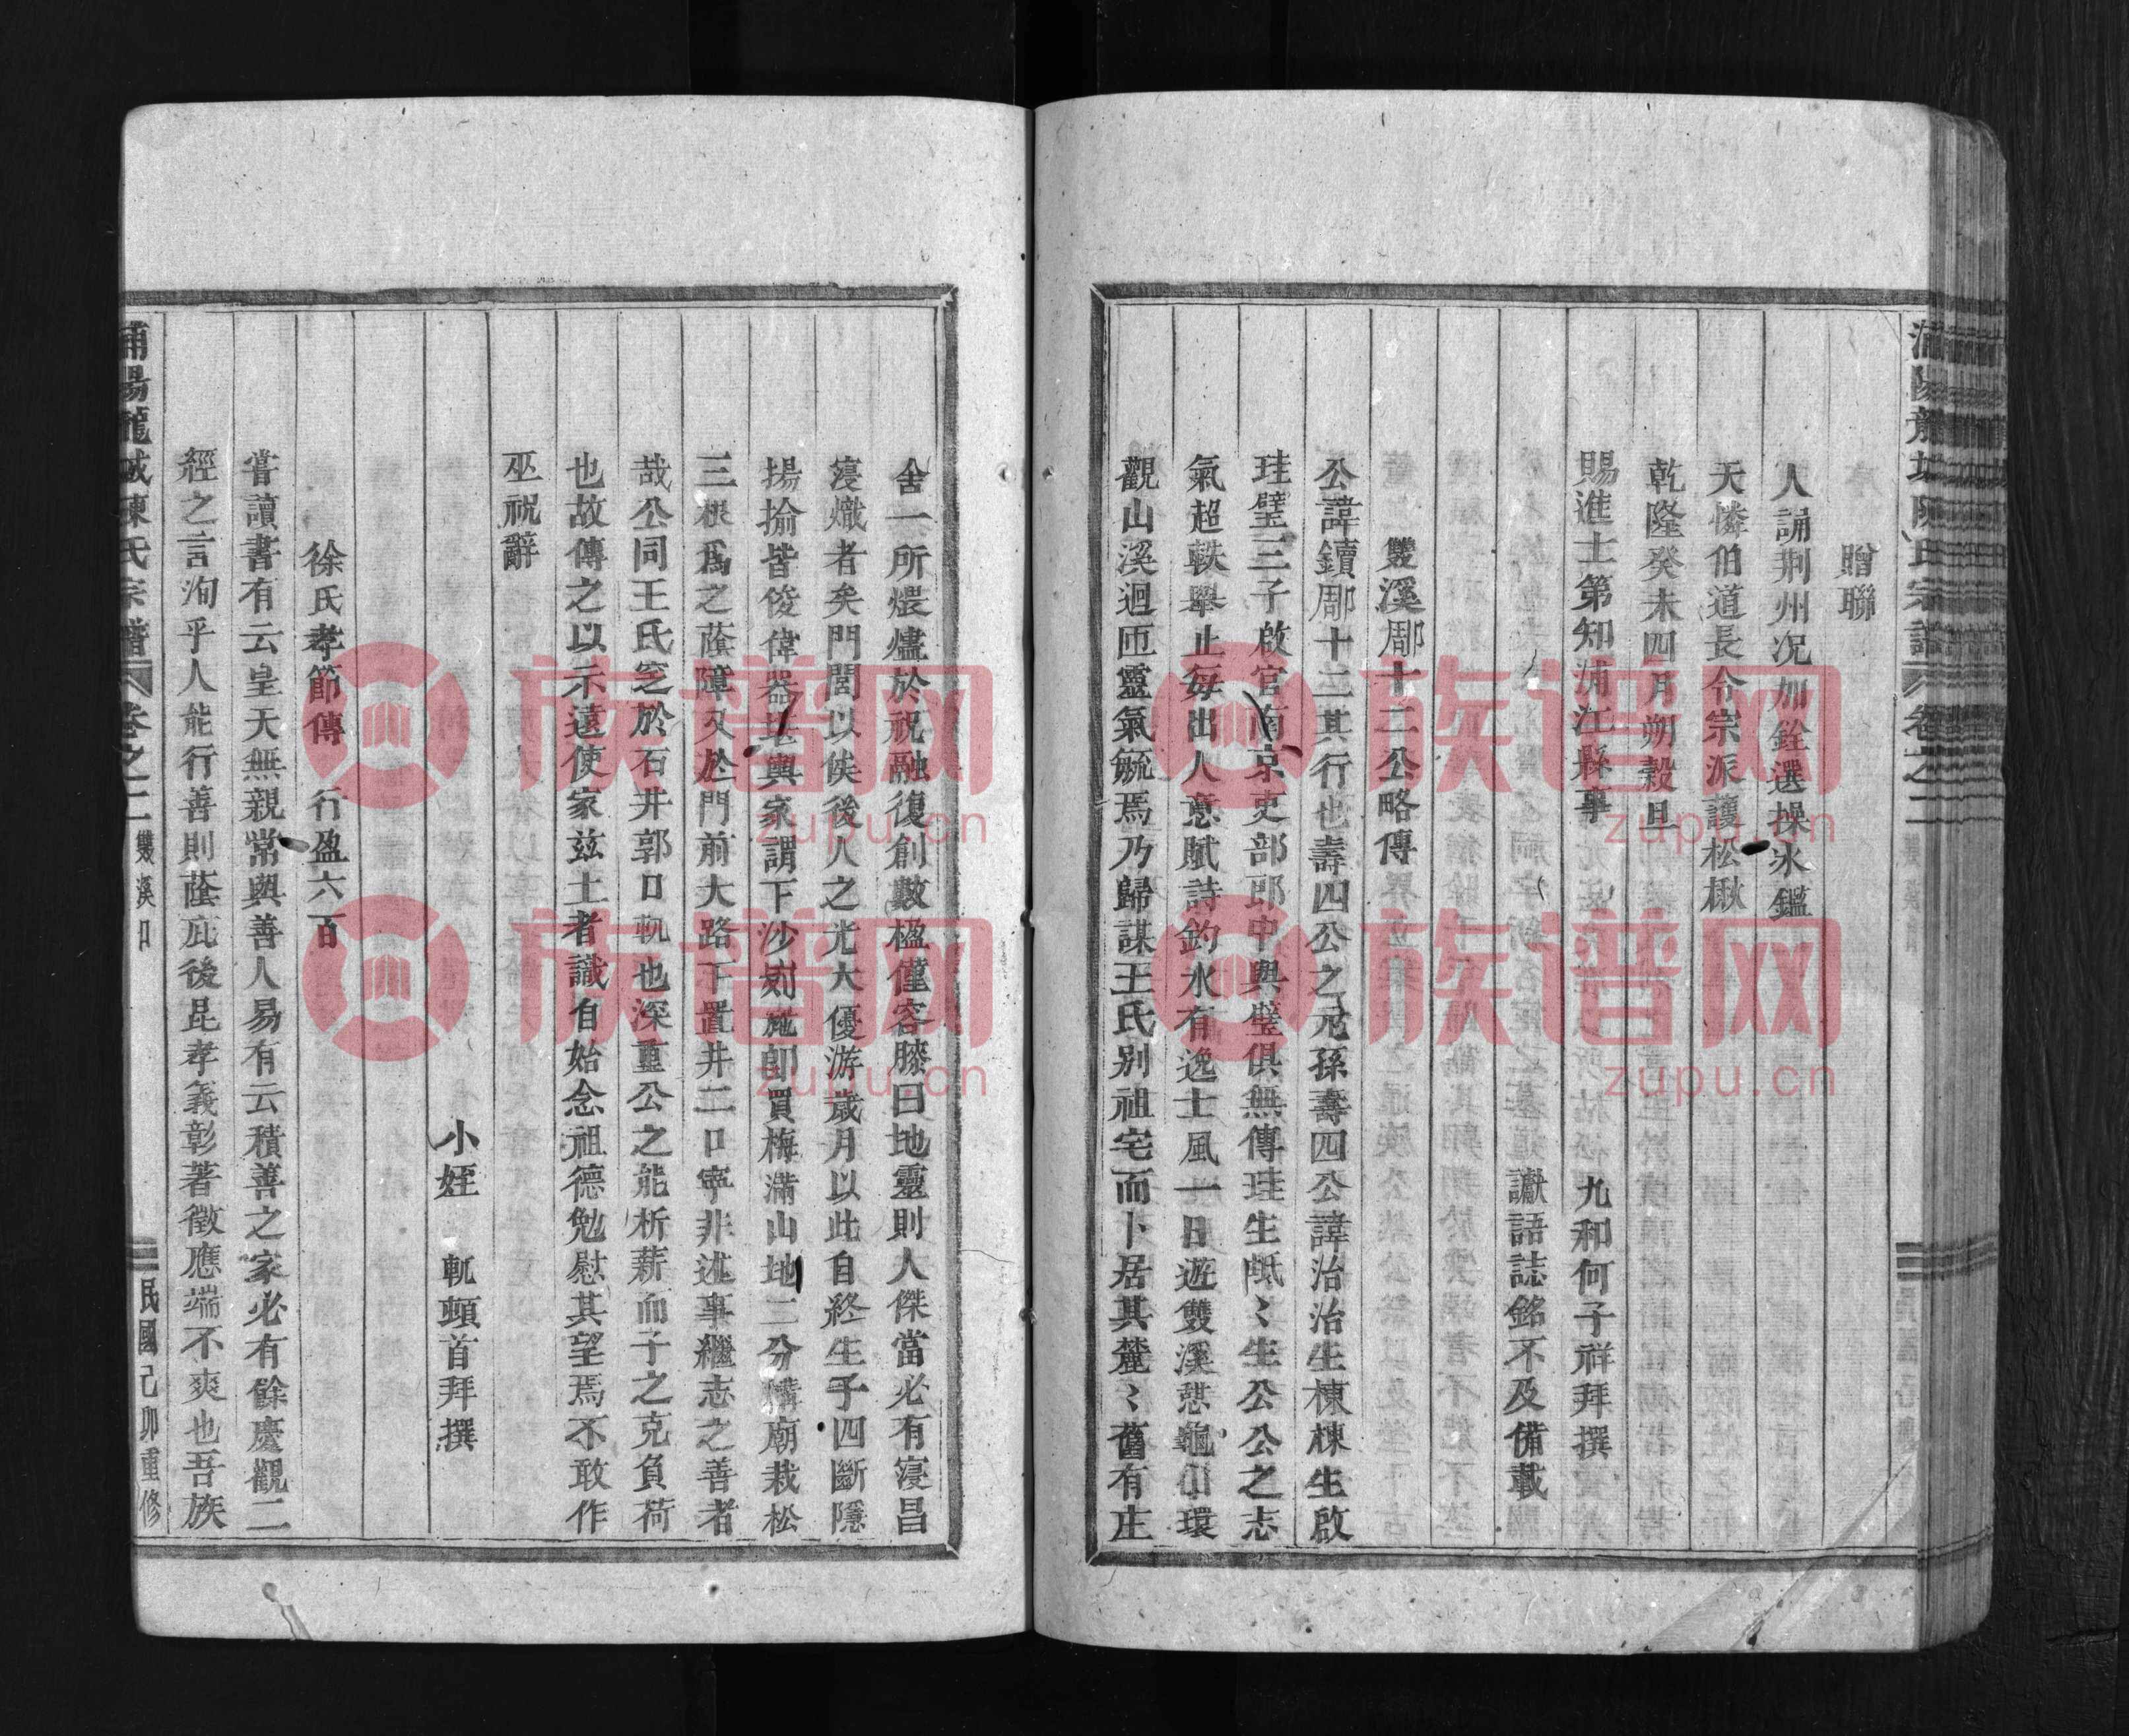 贈聯
人誦荆州况加銓選操氷鑑
天憐伯道長令宗派護松楸
乾隆癸未四月朔穀旦
賜進士第知浦江縣事 九和何子祥拜撰
讞語誌銘不及備載
雙溪郮十二公略傳
公諱鑟郮十二其行也壽四公之元孫壽四公諱治治生棟棟生啟
珪璧三子啟官南京吏部郎中與璧俱無傳珪生𤭁〻生公公之志
氣超軼舉止每出人意賦詩釣水有逸士風一日遊雙溪憇龜山環
觀山溪迴匝靈氣毓焉乃歸謀王氏别祖宅而卜居其麓〻舊有庄
舍一所煨爐於祝融復創數楹僅容膝曰地靈則人傑當必有寖昌
寖熾者矣門閭以俟後人之光大優游歲月以此自終生子四斷隱
揚揄皆俊偉器堪輿家謂下沙刻薄卽買梅滿山地二分搆廟栽松
三根爲之蔭障又於門前大路下置井二口寧非述事繼志之善者
哉公同王氏窆於石井郭口軏也深重公之能析薪而子之克負荷
也故傳之以示遠使家兹土者識自始念祖德勉慰其望焉不敢作
巫祝辭
小姪 軏頓首拜撰
徐氏孝節傳 行盈六百
嘗讀書有云皇天無親常與善人易有云積善之家必有餘慶觀二
經之言洵乎人能行善則蔭庇後昆孝義彰著徵應端不爽也吾族
浦陽龍城陳氏宗譜 卷之二 雙溪口 民國己卯重修
族谱网
zupu.cn
族谱网
zupu.cn
族谱网
zupu.cn
族谱网
zupu.cn